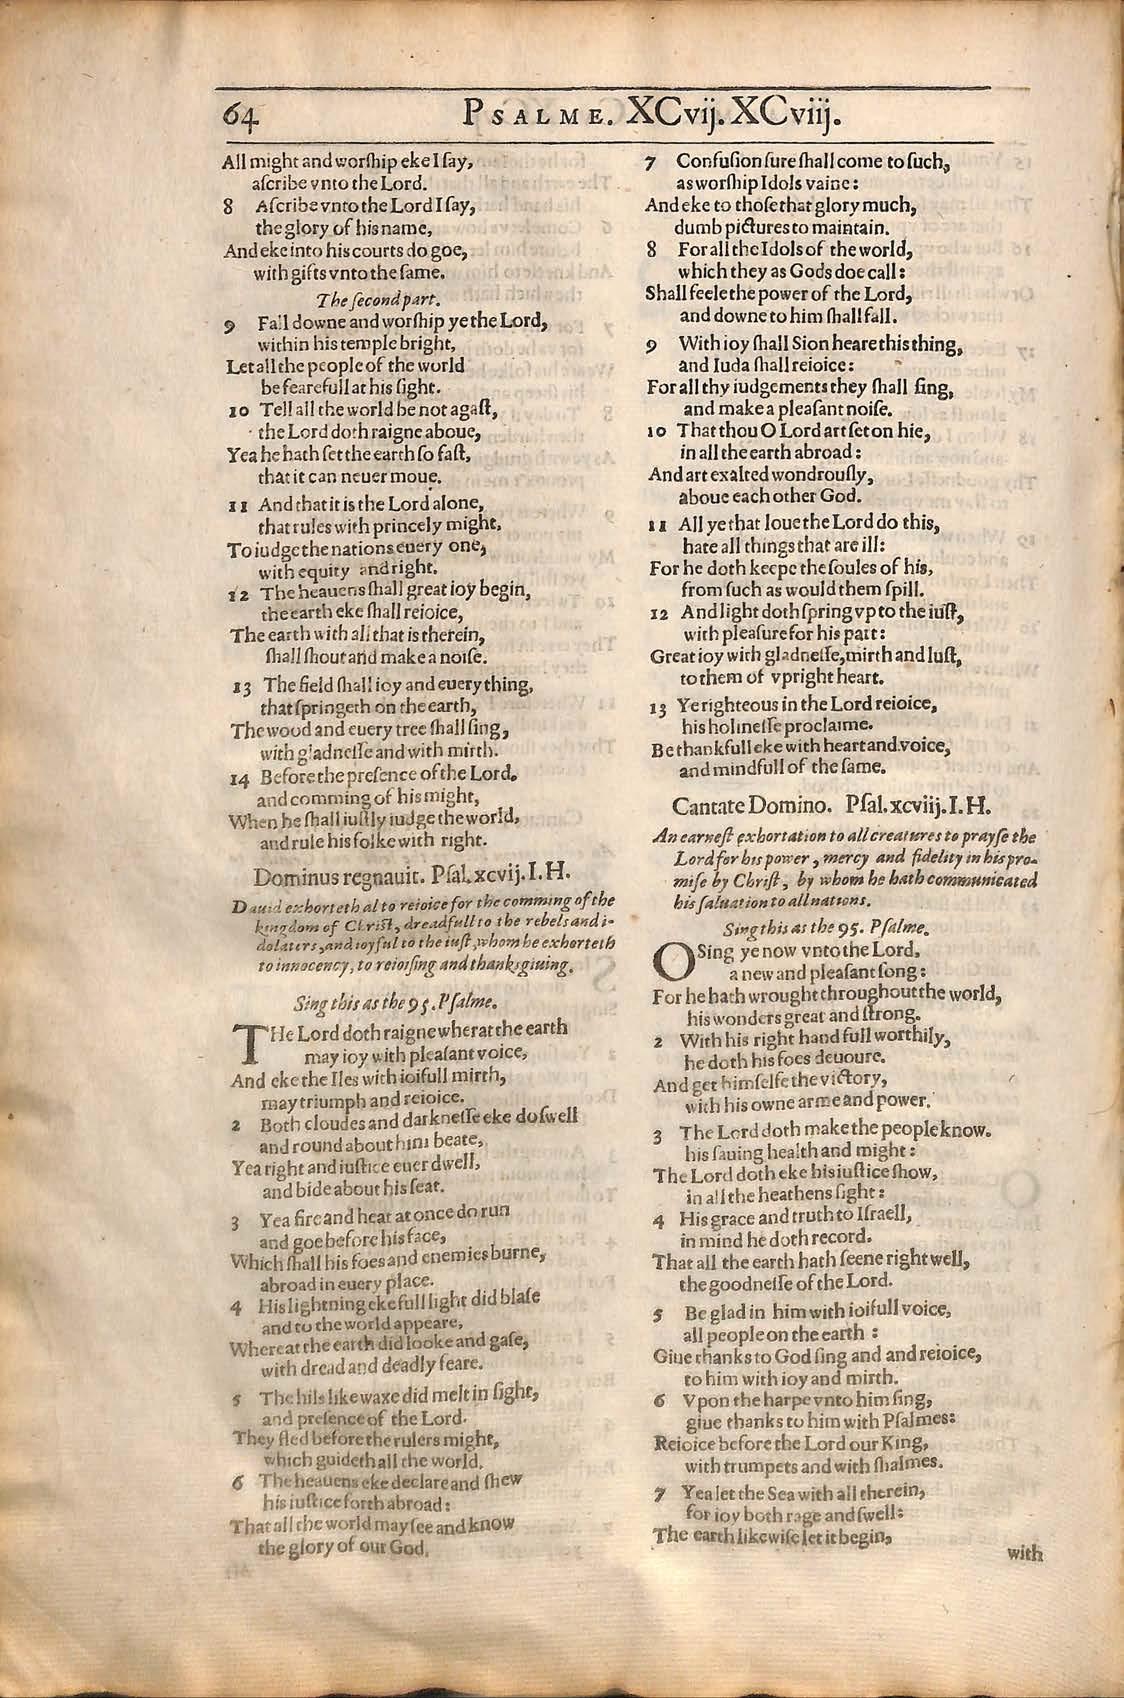 64
PSALME. XCvij. XCviij.
All might and worſhip eke I ſay,
aſcribe vnto the Lord.
8 Aſcribe vnto the Lord I ſay,
the glory of his name,
And eke into his courts do goe,
with gifts vnto the ſame.
The ſecond part.
9 Fall downe and worſhip ye the Lord,
within his temple bright,
Let all the people of the world
be fearefull at his ſight.
10 Tell all the world be not agaſt,
the Lord doth raigne aboue,
Yea he hath ſet the earth ſo faſt,
that it can neuer moue.
11 And that it is the Lord alone,
that rules with princely might,
To iudge the nations euery one,
with equity and right.
12 The heauens ſhall great ioy begin,
the earth eke ſhall reioice,
The earth with all that is therein,
ſhall ſhout and make a noiſe.
13 The field ſhall ioy and euery thing,
that ſpringeth on the earth,
The wood and euery tree ſhall ſing,
with gladneſſe and with mirth.
14 Before the preſence of the Lord.
and comming of his might,
When he ſhall iuſtly iudge the world,
and rule his folke with right.
Dominus regnauit. Pſal. xcvij. I. H.
Dauid exhorteth al to reioice for the comming of the
kingdom of Chriſt, dreadfull to the rebels and i-
dolaters, and ioyful to the iuſt, whom he exhorteth
to innocency, to reioiſing and thankſgiuing.
Sing this as the 95. Pſalme.
THe Lord doth raigne wherat the earth
may ioy with pleaſant voice,
And eke the Iles with ioifull mirth,
may triumph and reioice.
2 Both cloudes and darkneſſe eke do ſwell
and round about him beate,
Yea right and iuſtice euer dwell,
and bide about his ſeat.
3 Yea fire and heat at once do run
and goe before his face,
Which ſhall his foes and enemies burne,
abroad in euery place.
4 His lightning eke full light did blaſe
and to the world appeare,
Whereat the earth did looke and gaſe,
with dread and deadly feare.
5 The hils like waxe did melt in ſight,
and preſence of the Lord.
They fled before the rulers might,
which guideth all the world.
6 The heauens eke declare and ſhew
his iuſtice forth abroad:
That all the world may ſee and know
the glory of our God.
7 Confuſion ſure ſhall come to ſuch,
as worſhip Idols vaine:
And eke to thoſe that glory much,
dumb pictures to maintain.
8 For all the Idols of the world,
which they as Gods doe call:
Shall feele the power of the Lord,
and downe to him ſhall fall.
9 With ioy ſhall Sion heare this thing,
and Iuda ſhall reioice:
For all thy iudgements they ſhall ſing,
and make a pleaſant noiſe.
10 That thou O Lord art ſet on hie,
in all the earth abroad:
And art exalted wondrouſly,
aboue each other God.
11 All ye that loue the Lord do this,
hate all things that are ill:
For he doth keepe the ſoules of his,
from ſuch as would them ſpill.
12 And light doth ſpring vp to the iuſt,
with pleaſure for his patt:
Great ioy with gladneſſe, mirth and luſt,
to them of vpright heart.
13 Ye righteous in the Lord reioice,
his holineſſe proclaime.
Be thankfull eke with heart and voice,
and mindfull of the ſame.
Cantate Domino. Pſal. xcviij. I. H.
An earneſt exhortation to all creatures to prayſe the
Lord for his power, mercy and fidelity in his pro-
miſe by Chriſt, by whom he hath communicated
his ſaluation to all nations.
Sing this as the 95. Pſalme.
O Sing ye now vnto the Lord,
a new and pleaſant ſong:
For he hath wrought throughout the world,
his wonders great and ſtrong.
2 With his right hand full worthily,
he doth his foes deuoure.
And get himſelfe the victory,
with his owne arme and power.
3 The Lord doth make the people know.
his ſauing health and might:
The Lord doth eke his iuſtice ſhow,
in all the heathens ſight:
4 His grace and truth to Iſraell,
in mind he doth record.
That all the earth hath ſeene right well,
the goodneſſe of the Lord.
5 Be glad in him with ioifull voice,
all people on the earth :
Giue thanks to God ſing and and reioice,
to him with ioy and mirth.
6 Vpon the harpe vnto him ſing,
giue thanks to him with Pſalmes:
Reioice before the Lord our King,
with trumpets and with ſhalmes.
7 Yea let the Sea with all therein,
for ioy both rage and ſwell:
The earth likewiſe let it begin,
with